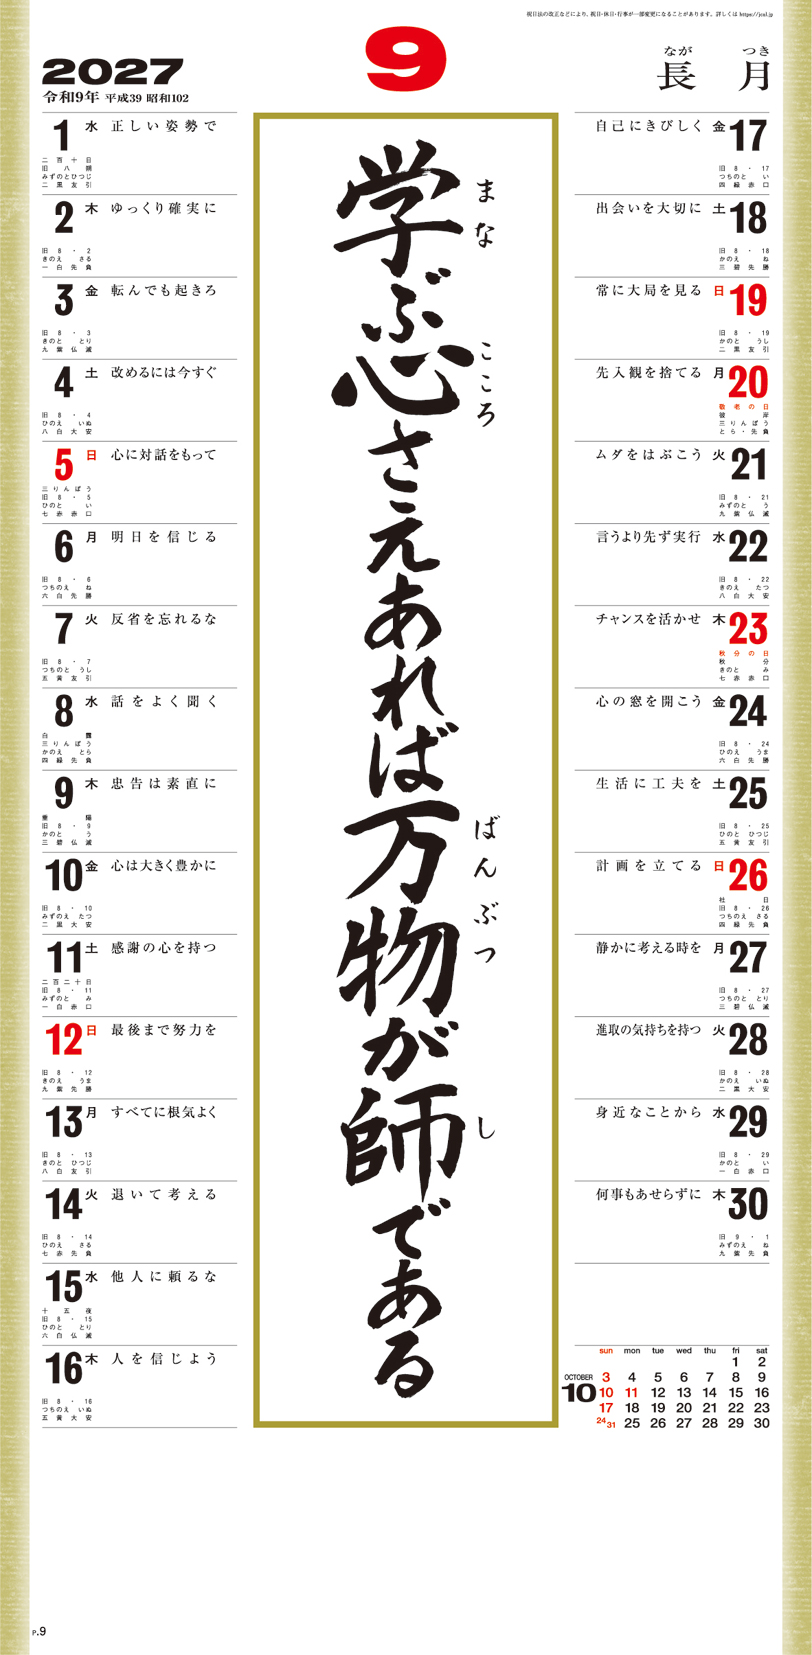 祝日法の改正などにより、祝日・休日・行事が一部変更になることがあります。詳しくは https://jcal.jp
2027
令和9年 平成39 昭和102
9
なが つき
長月
学ぶ心さえあれば万物が師である
まな
こころ
ばんぶつ
し
1 水 正しい姿勢で
二百十日
旧八朔
みずのとひつじ
二黒友引
2 木 ゆっくり確実に
旧8・2
きのえ さる
一白先負
3 金 転んでも起きろ
旧8・3
きのと とり
九紫仏滅
4 土 改めるには今すぐ
旧8・4
ひのえ いぬ
八白大安
5 日 心に対話をもって
三りんぼう
旧8・5
ひのと い
七赤赤口
6 月 明日を信じる
旧8・6
つちのえ ね
六白先勝
7 火 反省を忘れるな
旧8・7
つちのと うし
五黄友引
8 水 話をよく聞く
白露
三りんぼう
かのえ とら
四緑先負
9 木 忠告は素直に
重陽
旧8・9
かのと う
三碧仏滅
10 金 心は大きく豊かに
旧8・10
みずのえ たつ
二黒大安
11 土 感謝の心を持つ
二百二十日
旧8・11
みずのと み
一白赤口
12 日 最後まで努力を
旧8・12
きのえ うま
九紫先勝
13 月 すべてに根気よく
旧8・13
きのと ひつじ
八白友引
14 火 退いて考える
旧8・14
ひのえ さる
七赤先負
15 水 他人に頼るな
十五夜
旧8・15
ひのと とり
六白仏滅
16 木 人を信じよう
旧8・16
つちのえ いぬ
五黄大安
自己にきびしく 金 17
旧8・17
つちのと い
四緑赤口
出会いを大切に 土 18
旧8・18
かのえ ね
三碧先勝
常に大局を見る 日 19
旧8・19
かのと うし
二黒友引
先入観を捨てる 月 20
敬老の日
彼岸
三りんぼう
とら・先負
ムダをはぶこう 火 21
旧8・21
みずのと う
九紫仏滅
言うより先ず実行 水 22
旧8・22
きのえ たつ
八白大安
チャンスを活かせ 木 23
秋分の日
秋分
きのと み
七赤赤口
心の窓を開こう 金 24
旧8・24
ひのえ うま
六白先勝
生活に工夫を 土 25
旧8・25
ひのと ひつじ
五黄友引
計画を立てる 日 26
社日
旧8・26
つちのえ さる
四緑先負
静かに考える時を 月 27
旧8・27
つちのと とり
三碧仏滅
進取の気持ちを持つ 火 28
旧8・28
かのえ いぬ
二黒大安
身近なことから 水 29
旧8・29
かのと い
一白赤口
何事もあせらずに 木 30
旧9・1
みずのえ ね
九紫先負
OCTOBER
10
sun mon tue wed thu fri sat
1 2
3 4 5 6 7 8 9
10 11 12 13 14 15 16
17 18 19 20 21 22 23
24 31 25 26 27 28 29 30
P.9